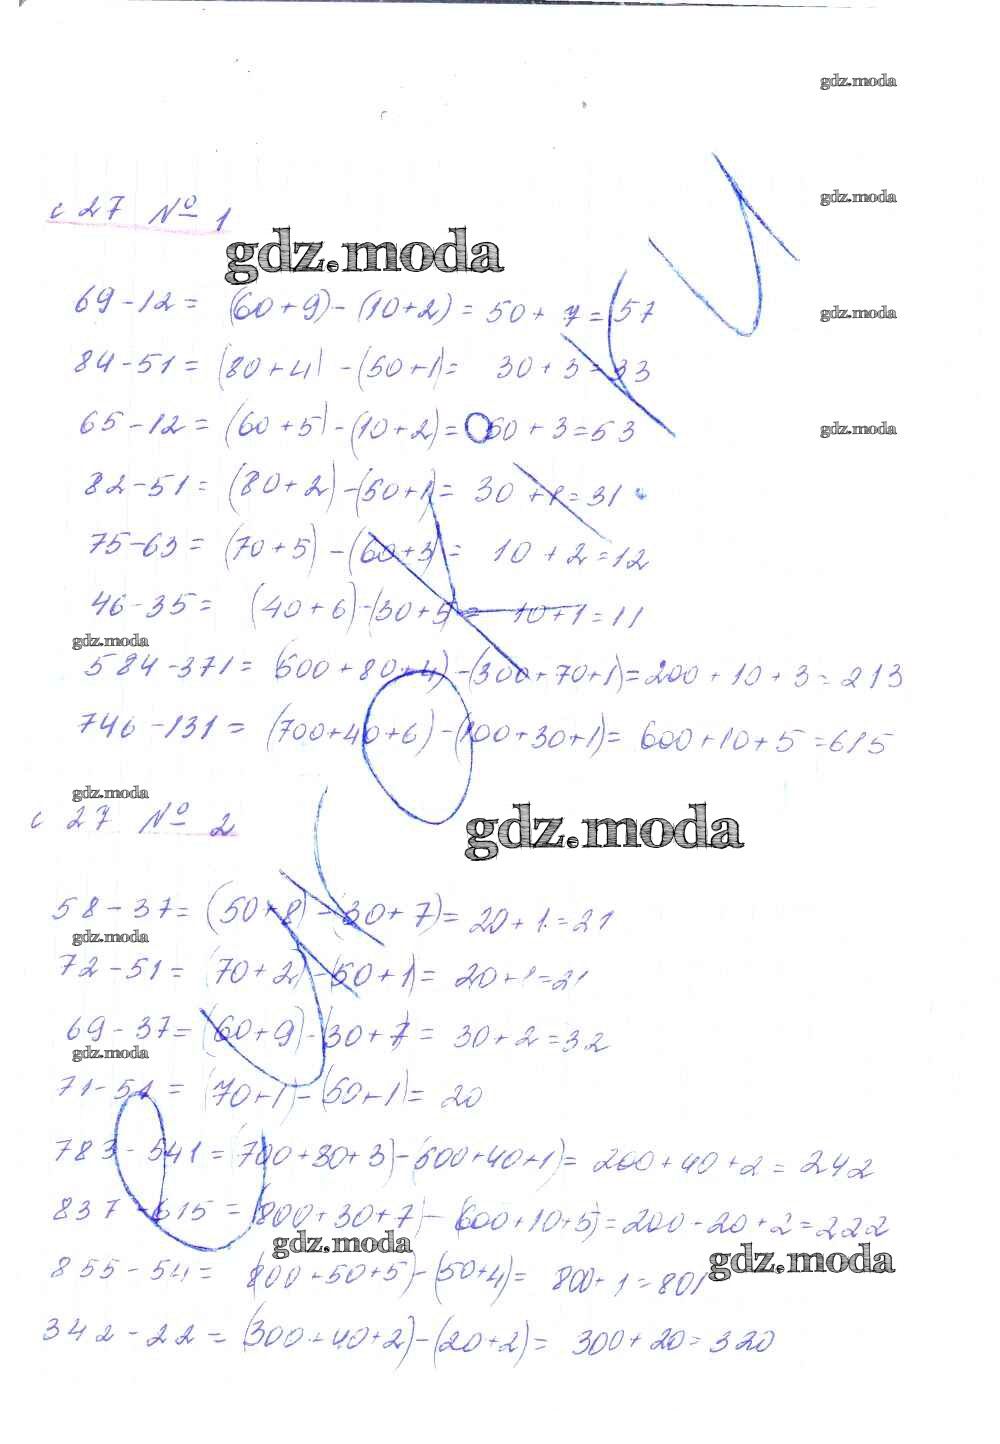 gdz.moda
gdz.moda
с 27 № 1
gdz.moda
69-12= (60+9)-(10+2)= 50+7=57
gdz.moda
84-51= (80+4)-(50+1)= 30+3=33
65-12= (60+5)-(10+2)= 50+3=53
gdz.moda
82-51= (80+2)-(50+1)= 30+1=31
75-63= (70+5)-(60+3)= 10+2=12
46-35= (40+6)-(30+5)= 10+1=11
gdz.moda
584-371= (500+80+4)-(300+70+1)=200+10+3=213
746-131= (700+40+6)-(100+30+1)= 600+10+5=615
gdz.moda
с 27 № 2
gdz.moda
58-37= (50+8)-(30+7)= 20+1=21
gdz.moda
72-51= (70+2)-(50+1)= 20+1=21
69-37= (60+9)-(30+7= 30+2=32
gdz.moda
71-51= (70+1)-(50+1)= 20
783-541= (700+80+3)-(500+40+1)= 200+40+2=242
837-615= (800+30+7)-(600+10+5)=200+20+2=222
gdz.moda
gdz.moda
855-54= (800+50+5)-(50+4)= 800+1=801
342-22= (300+40+2)-(20+2)= 300+20=320